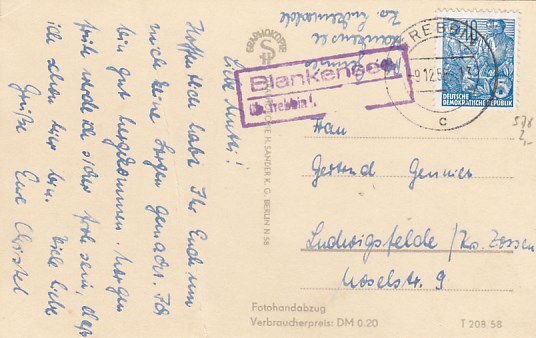 Liebe Mutti!
Hoffentlich habt Ihr Euch um
mich keine Sorgen gemacht. Ich
bin gut angekommen. Morgen
früh werde ich sicher froh sein, daß
ich schon hier bin. Viele liebe
Grüße Eure Christel
Kr. Luckenwalde
Blankensee
GRAPHOKOPIE
H. SANDER K. G. BERLIN N 58
Blankensee
über Trebbin
REBBIN
9.12.58
c
10
DEUTSCHE
DEMOKRATISCHE REPUBLIK
578
2,-
Frau
Gertrud Gennies
Ludwigsfelde / Kr. Zossen
Moselstr. 9
Fotohandabzug
Verbraucherpreis: DM 0.20
T 208/58